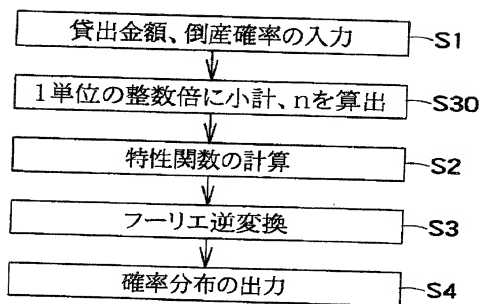 貸出金額、倒産確率の入力 S1
1単位の整数倍に小計、nを算出 S30
特性関数の計算 S2
フーリエ逆変換 S3
確率分布の出力 S4